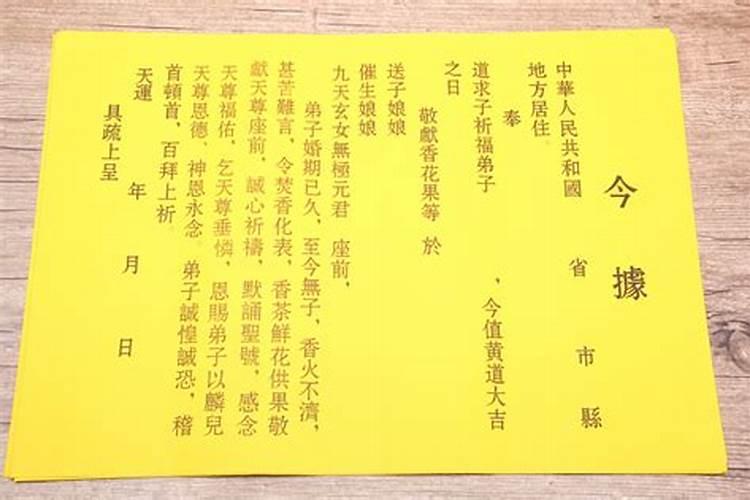 今據
中華人民共和國 省 市 縣
地方居住。
奉
道求子祈福弟子 ，今值黃道大吉
之日
敬獻香花果等 於
送子娘娘
催生娘娘
九天玄女無極元君 座前，
弟子婚期已久，至今無子，香火不濟，
甚苦難言，令焚香化表，香茶鮮花供果敬
獻天尊座前，誠心祈禱，默誦聖號，感念
天尊福佑，乞天尊垂憐，恩賜弟子以麟兒
天尊恩德，神恩永念。弟子誠惶誠恐，稽
首頓首，百拜上祈。
天運 年 月 日
具疏上呈